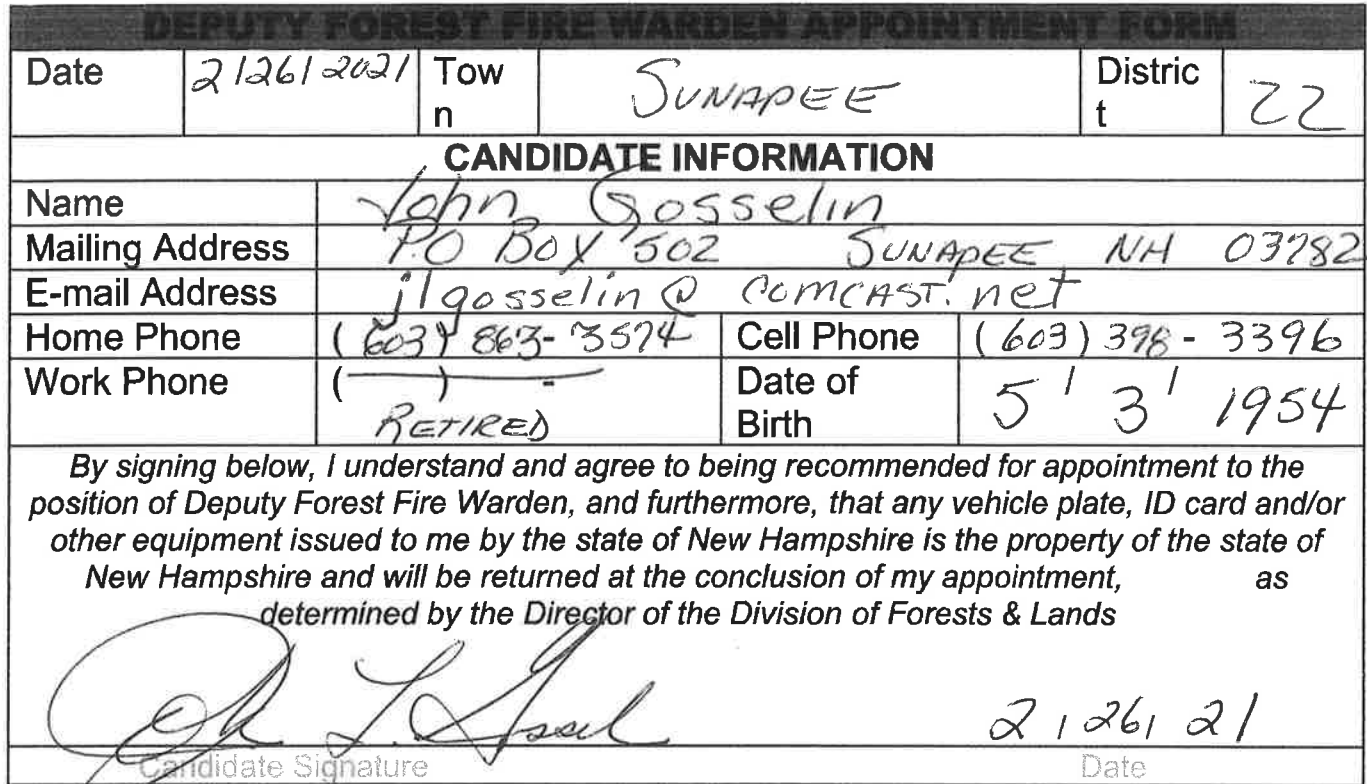 DEPUTY FOREST FIRE WARDEN APPOINTMENT FORM
Date 2/26/2021 Tow
n SUNAPEE Distric
t 22
CANDIDATE INFORMATION
Name John Gosselin
Mailing Address P.O BOX 502 SUNAPEE NH 03782
E-mail Address jlgosselin@comcast.net
Home Phone (603) 863-3574 Cell Phone (603) 398-3396
Work Phone ( ) - RETIRED Date of
Birth 5/3/1954
By signing below, I understand and agree to being recommended for appointment to the
position of Deputy Forest Fire Warden, and furthermore, that any vehicle plate, ID card and/or
other equipment issued to me by the state of New Hampshire is the property of the state of
New Hampshire and will be returned at the conclusion of my appointment, as
determined by the Director of the Division of Forests & Lands
2/26/21
Candidate Signature Date